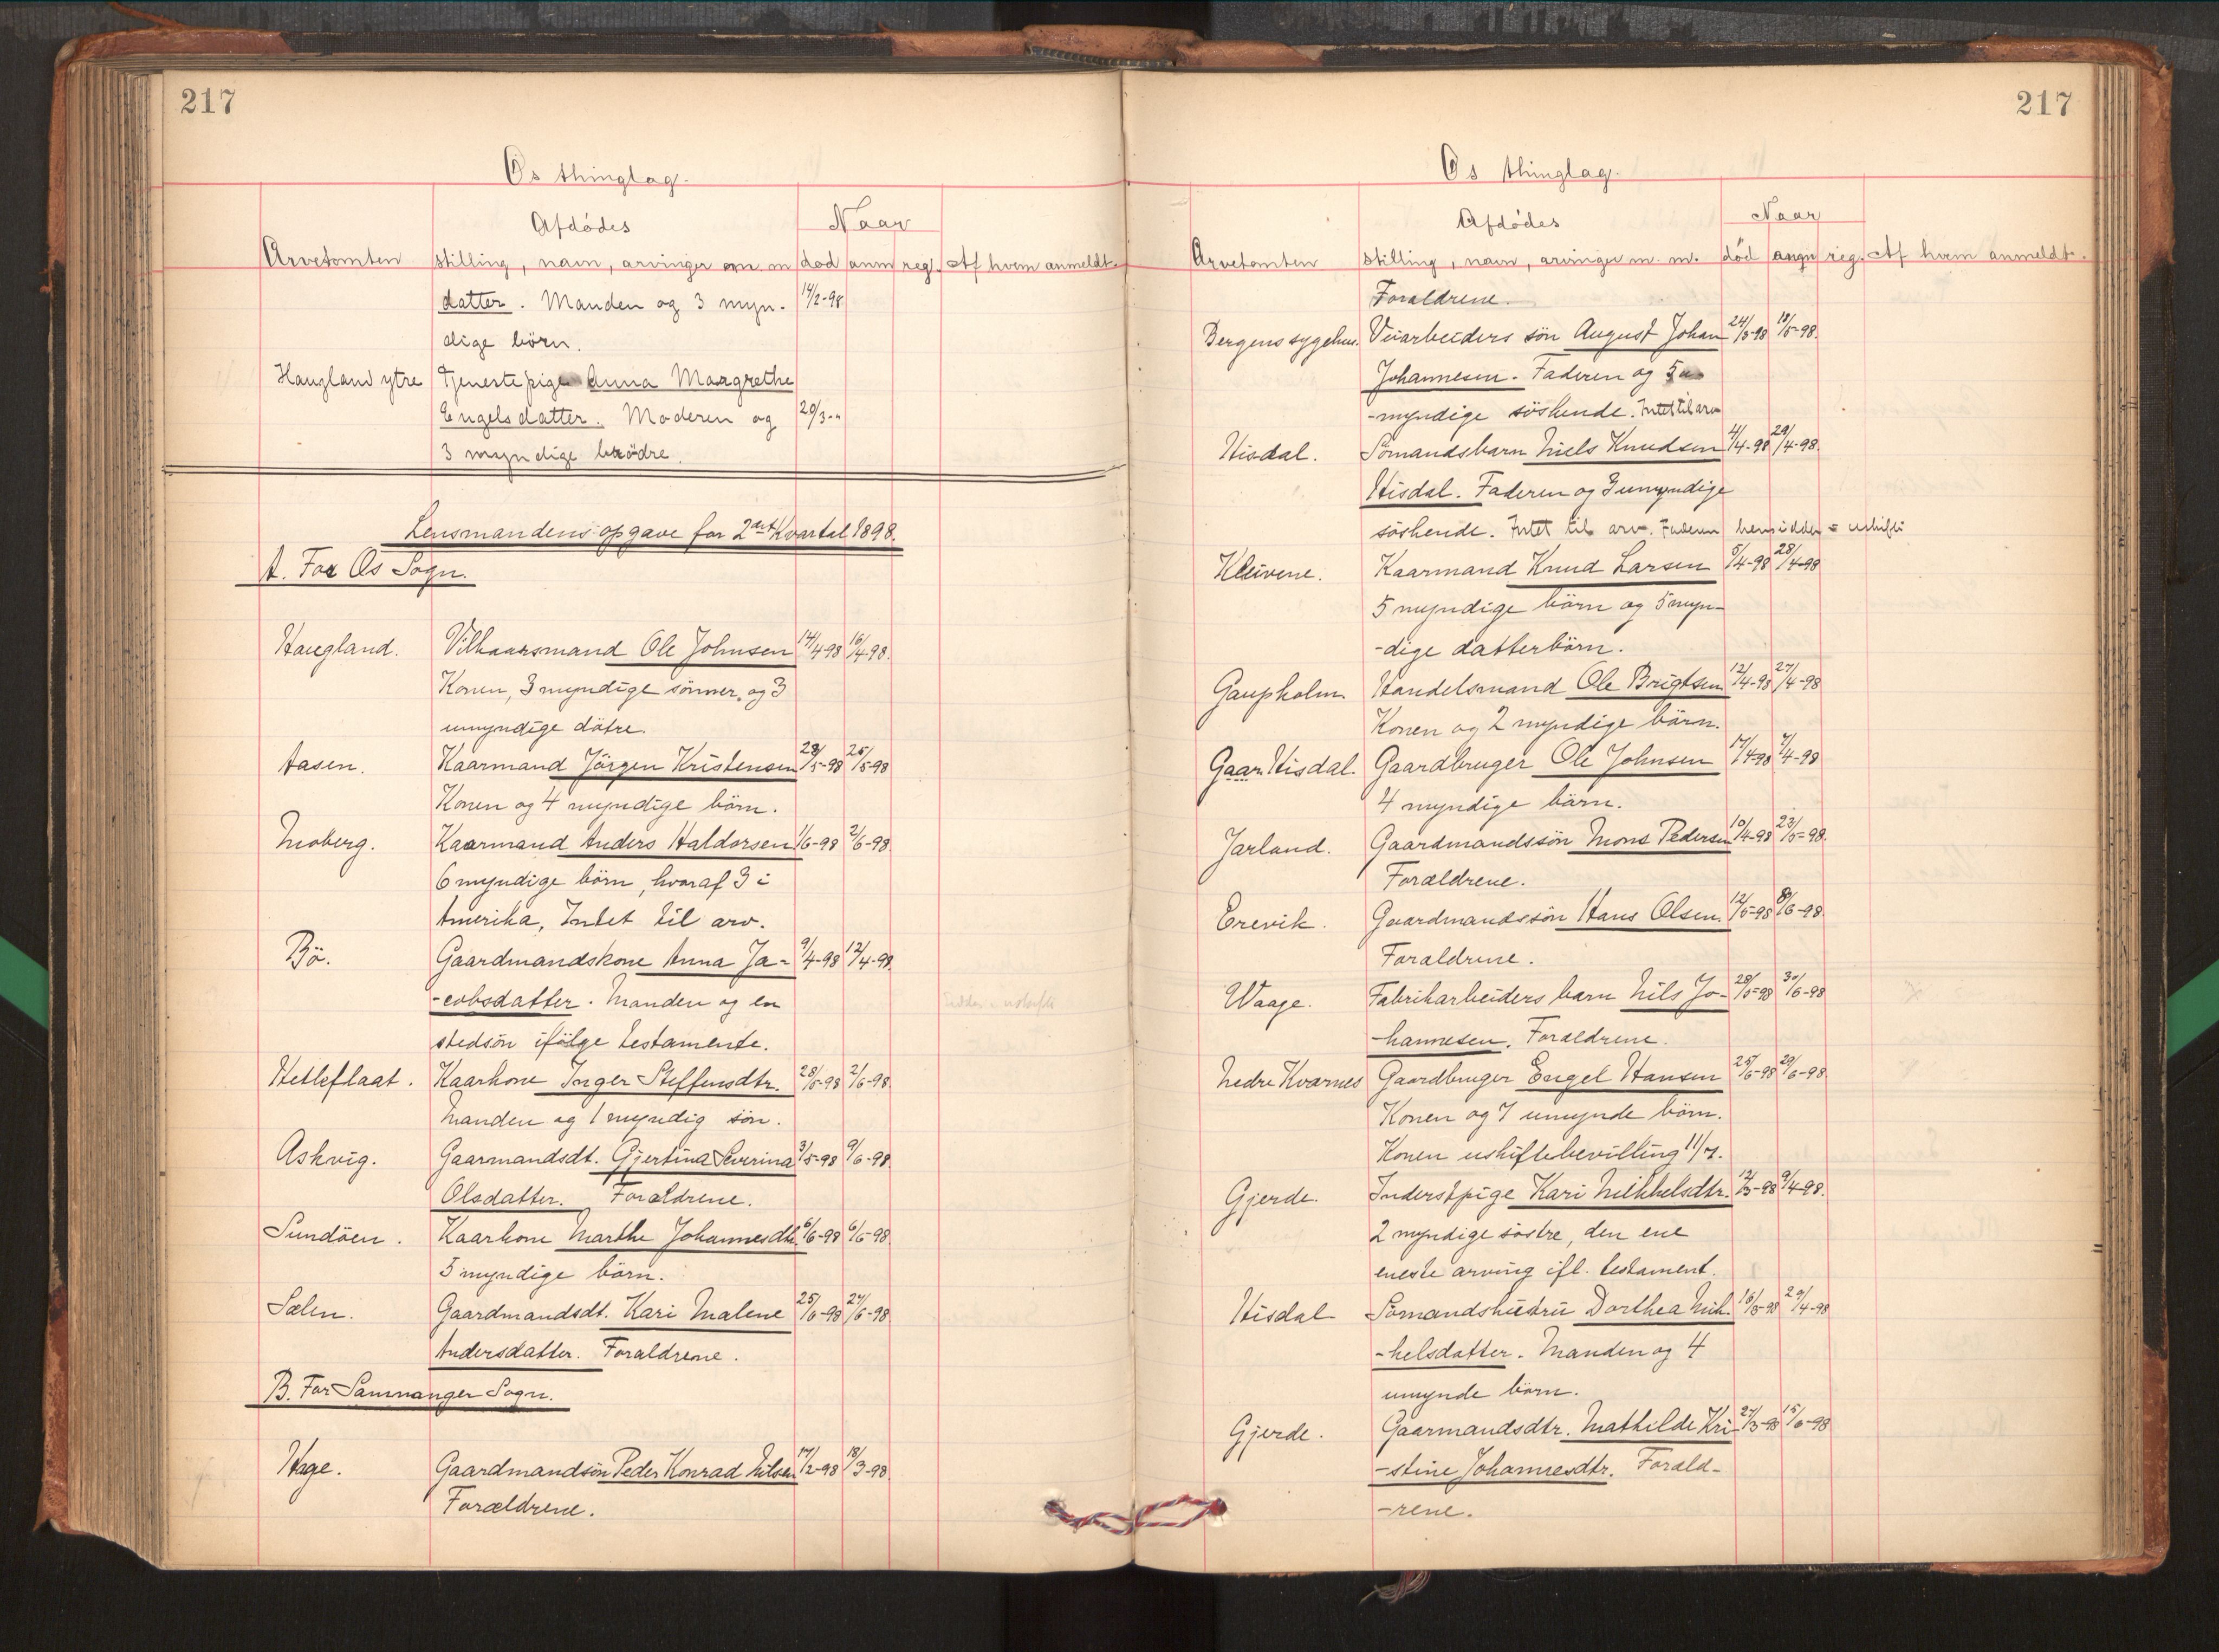 217
Os thinglag.
Afdödes Naar
Arvetomten stilling, navn, arvinger m. m död anm reg. Af hvem anmeldt.
datter. Manden og 3 myn- 14/2-98
dige börn.
Haugland ytre Tjenestepige Anna Margrethe
Engelsdatter. Moderen og 20/3-"
3 myndige brödre.
Lensmandens opgave for 2det Kvartal 1898.
A. For Os Sogn.
Haugland. Vilkaarsmand Ole Johnsen 14/4-98 16/4-98.
Konen, 3 myndige sönner, og 3
umyndige dötre.
Aasen. Kaarmand Jörgen Kristensen 23/5-98 25/5-98
Konen og 4 myndige börn.
Moberg. Kaarmand Anders Haldorsen 1/6-98 2/6-98
6 myndige börn, hvoraf 3 i
Amerika, Intet til arv.
Bö. Gaardmandskone Anna Ja- 9/4-98 12/4-98.
-cobsdatter. Manden og en
stedsön ifölge testamente.
Hetleflaat. Kaarkone Inger Steffensdtr. 28/5-98 2/6-98.
Manden og 1 myndig sön.
Askvig. Gaarmandsdt. Gjertina Severina 3/5-98 9/6-98.
Olsdatter. Forældrene.
Sundöen. Kaarkone Marthe Johannesdtr. 6/6-98 6/6-98.
5 myndige börn.
Sælen. Gaardmandsdt. Kari Malene 25/6-98 27/6-98
Andersdatter. Forældrene.
B. For Samnanger Sogn.
Hage. Gaardmandsön Peder Konrad Nilsen 17/2-98 18/3-98.
Forældrene.
217
Os thinglag.
Afdödes Naar
Arvetomten stilling, navn, arvinger m. m. död angn reg. Af hvem anmeldt.
Forældrene.
Bergens sygehus. Veiarbeiders sön August Johan 24/3-98 18/5-98.
Johannesen. Faderen og 5 u
-myndige söskende. Intet til arv
Hisdal. Sömandsbarn Niels Knudsen 4/4-98 29/4-98.
Hisdal. Faderen og 3 umyndige
söskende. Intet til arv. Faderen hensidder i uskifte
Kleivene. Kaarmand Knud Larsen 5/4-98 28/4-98
5 myndige börn og 5 myn-
-dige datterbörn.
Gaupholm Handelsmand Ole Brigtsen 12/4-98 27/4-98
Konen og 2 myndige börn.
Gaar. Hisdal. Gaardbruger Ole Johnsen 17/4-98 7/4-98
4 myndige börn.
Jarland. Gaardmandssön Mons Pedersen 10/4-98 23/5-98.
Forældrene.
Erevik. Gaardmandssön Hans Olsen. 12/5-98 8/6-98.
Forældrene.
Waage. Fabrikarbeiders barn Nils Jo- 28/5-98 30/6-98
-hannesen. Forældrene.
Nedre Kvarnes Gaardbruger Engel Hansen 25/6-98 29/6-98
Konen og 7 umynde börn.
Konen uskiftebevilling 11/7.
Gjerde. Inderstpige Kari Mikkelsdtr. 12/3-98 9/4-98.
2 myndige söstre, den ene
eneste arving ifl. testament.
Hisdal Sömandshustru Dorthea Mik- 16/3-98 29/4-98
-kelsdatter. Manden og 4
umynde börn.
Gjerde. Gaarmandsdtr. Mathilde Kri- 27/3-98 15/6-98
-stine Johannesdtr. Foræld-
-rene.